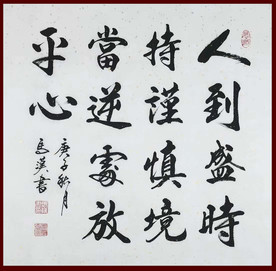 人到盛時
持謹慎境
當逆處放
平心
庚子秋月
馬漢書